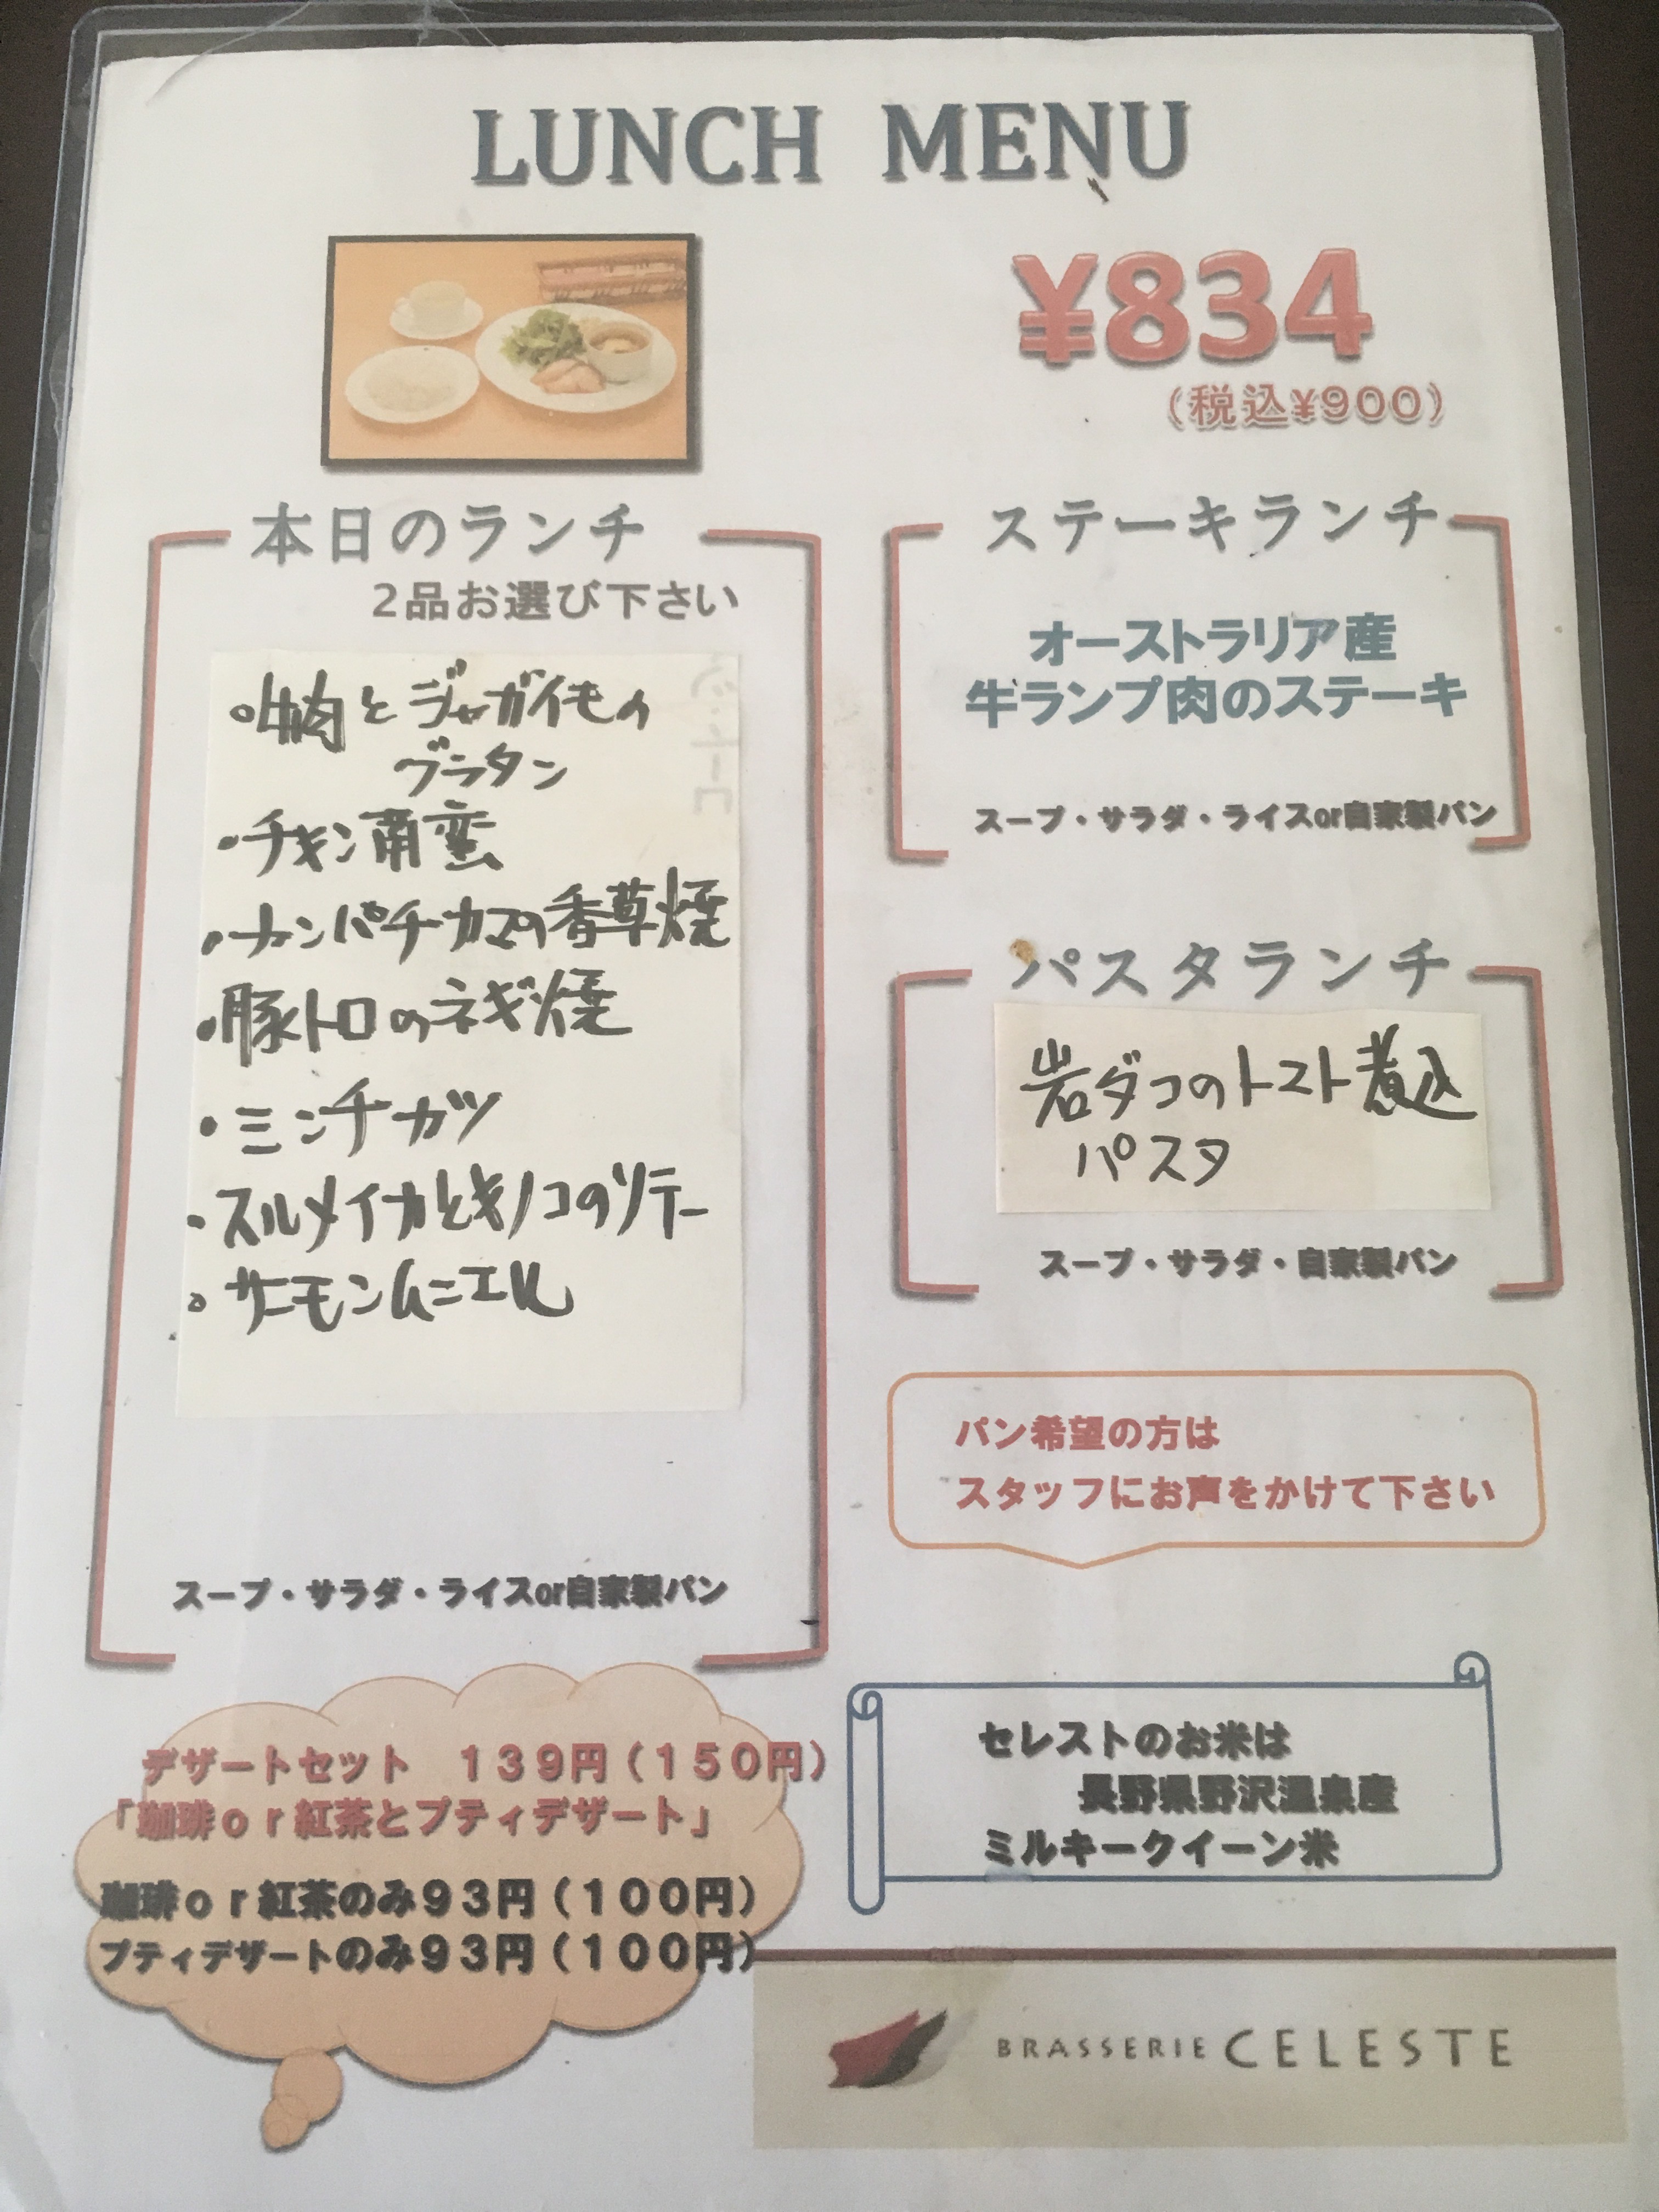 LUNCH MENU
¥834
（税込¥900）
本日のランチ
2品お選び下さい
・牛肉とジャガイモの
グラタン
・チキン南蛮
・カンパチカマの香草焼
・豚トロのネギ焼
・ミンチカツ
・スルメイカとキノコのソテー
・サーモンムニエル
スープ・サラダ・ライスor自家製パン
ステーキランチ
オーストラリア産
牛ランプ肉のステーキ
スープ・サラダ・ライスor自家製パン
パスタランチ
岩ダコのトマト煮込
パスタ
スープ・サラダ・自家製パン
パン希望の方は
スタッフにお声をかけて下さい
デザートセット　１３９円（１５０円）
「珈琲ｏｒ紅茶とプティデザート」
珈琲ｏｒ紅茶のみ９３円（１００円）
プティデザートのみ９３円（１００円）
セレストのお米は
長野県野沢温泉産
ミルキークイーン米
BRASSERIE CELESTE